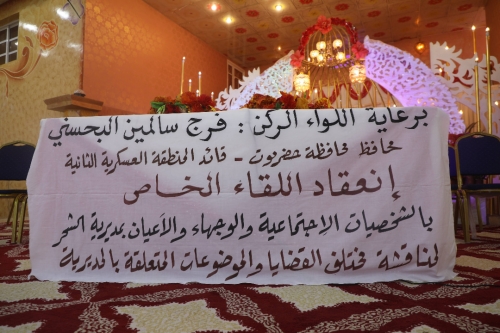 برعاية اللواء الركن : فرج سالمين البحسني
محافظ محافظة حضرموت - قائد المنطقة العسكرية الثانية
إنعقاد اللقاء الخاص
بالشخصيات الإجتماعية والوجهاء والأعيان بمديرية الشحر
لمناقشة مختلف القضايا والموضوعات المتعلقة بالمديرية